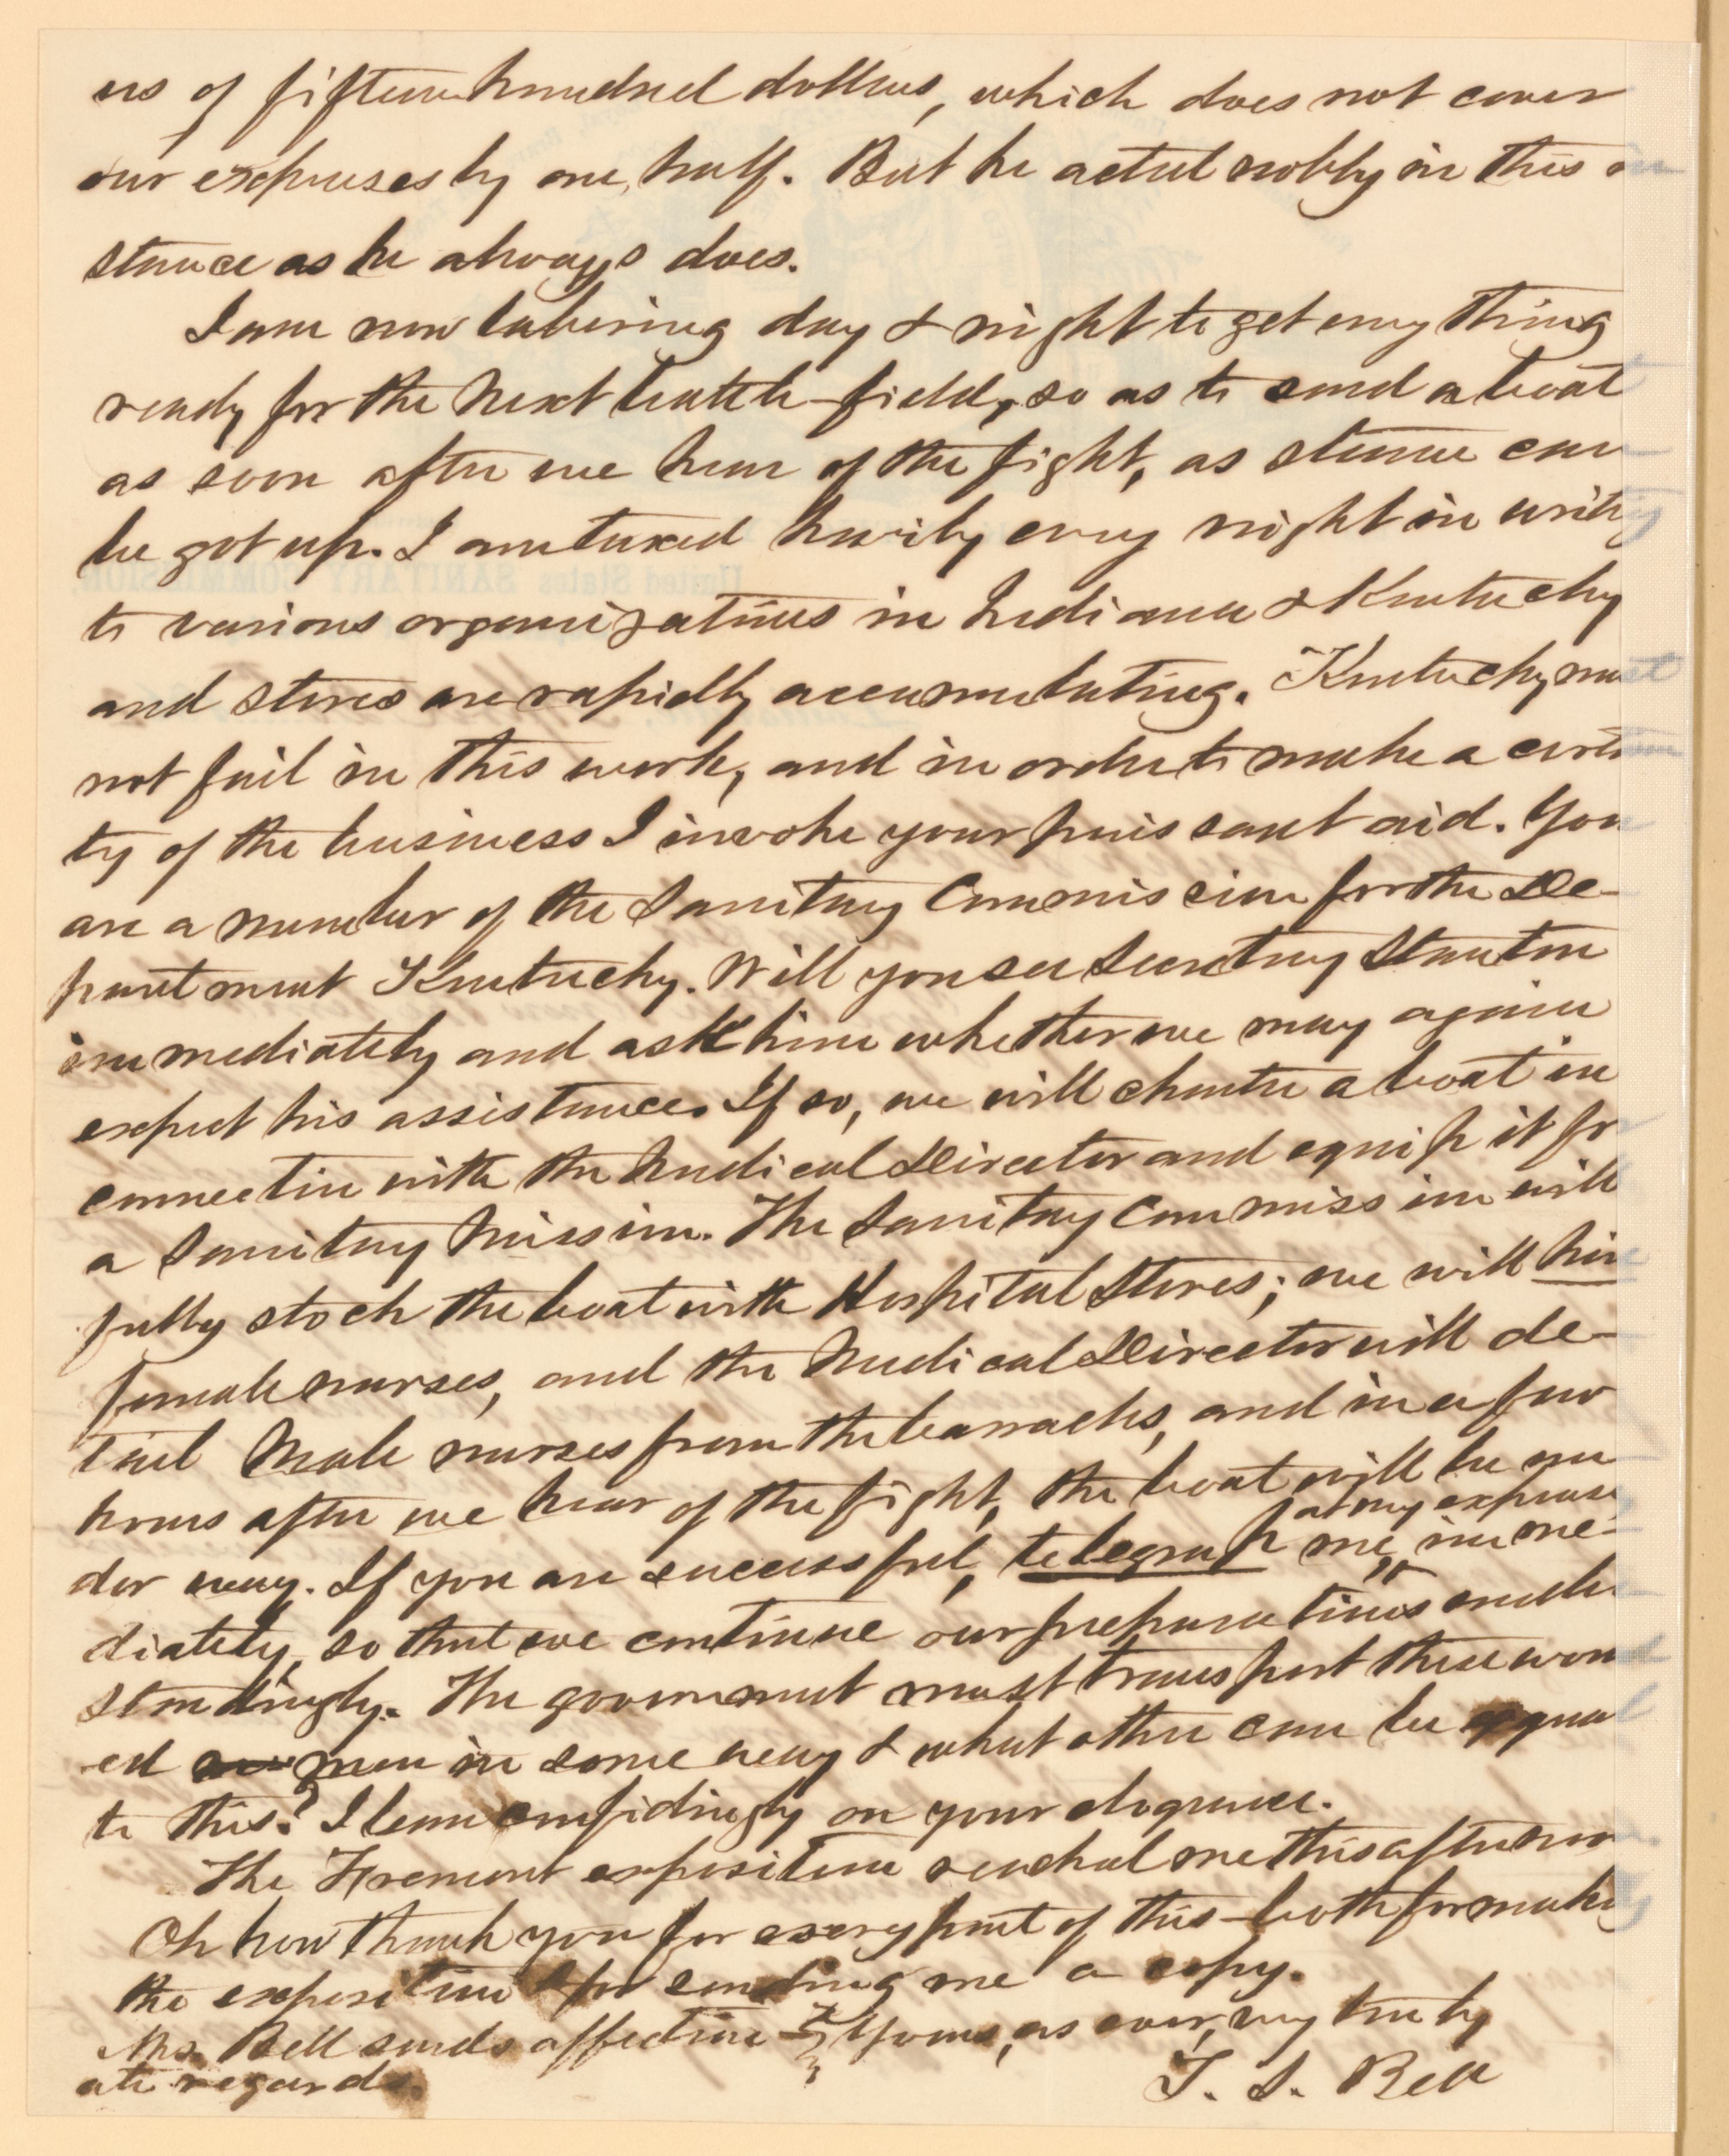 us of fifteen hundred dollars, which does not cover
our expenses by one half. But he acted nobly in this in
stance as he always does.
I am now laboring day & night to get every thing
ready for the next battle-field, so as to send a boat
as soon after we hear of the fight, as steam can
be got up. I am taxed heavily every night in writing
to various organizations in Indiana & Kentucky
and stores are rapidly accumulating. Kentucky must
not fail in this work, and in order to make a certain
ty of the business I invoke your puissant aid. You
are a member of the Sanitary Commission for the De-
partment Kentucky. Will you see Secretary Stanton
immediately and ask him whether we may again
expect his assistance. If so, we will charter a boat in
connection with the Medical Director and equip it for
a Sanitary Mission. The Sanitary Commission will
fully stock the boat with Hospital Stores; we will hire
female nurses, and the Medical Director will de-
tail Male nurses from the barracks, and in a few
hours after we hear of the fight, the boat will be un
at my expense
der way. If you are successful, telegraph me, imme-
diately, so that we continue our preparations under
standingly. The government must transport these wound
ed men in some way & what other can be equal
to this? I lean confidingly on your eloquence.
The Fremont exposition reached me this afternoon
Oh how thank you for every part of this - both for making
the exposition & for sending me a copy.
Mrs. Bell sends affection Yours, as ever, very truly
ate regards.
T. S. Bell
United States SANITARY COMMISSION,